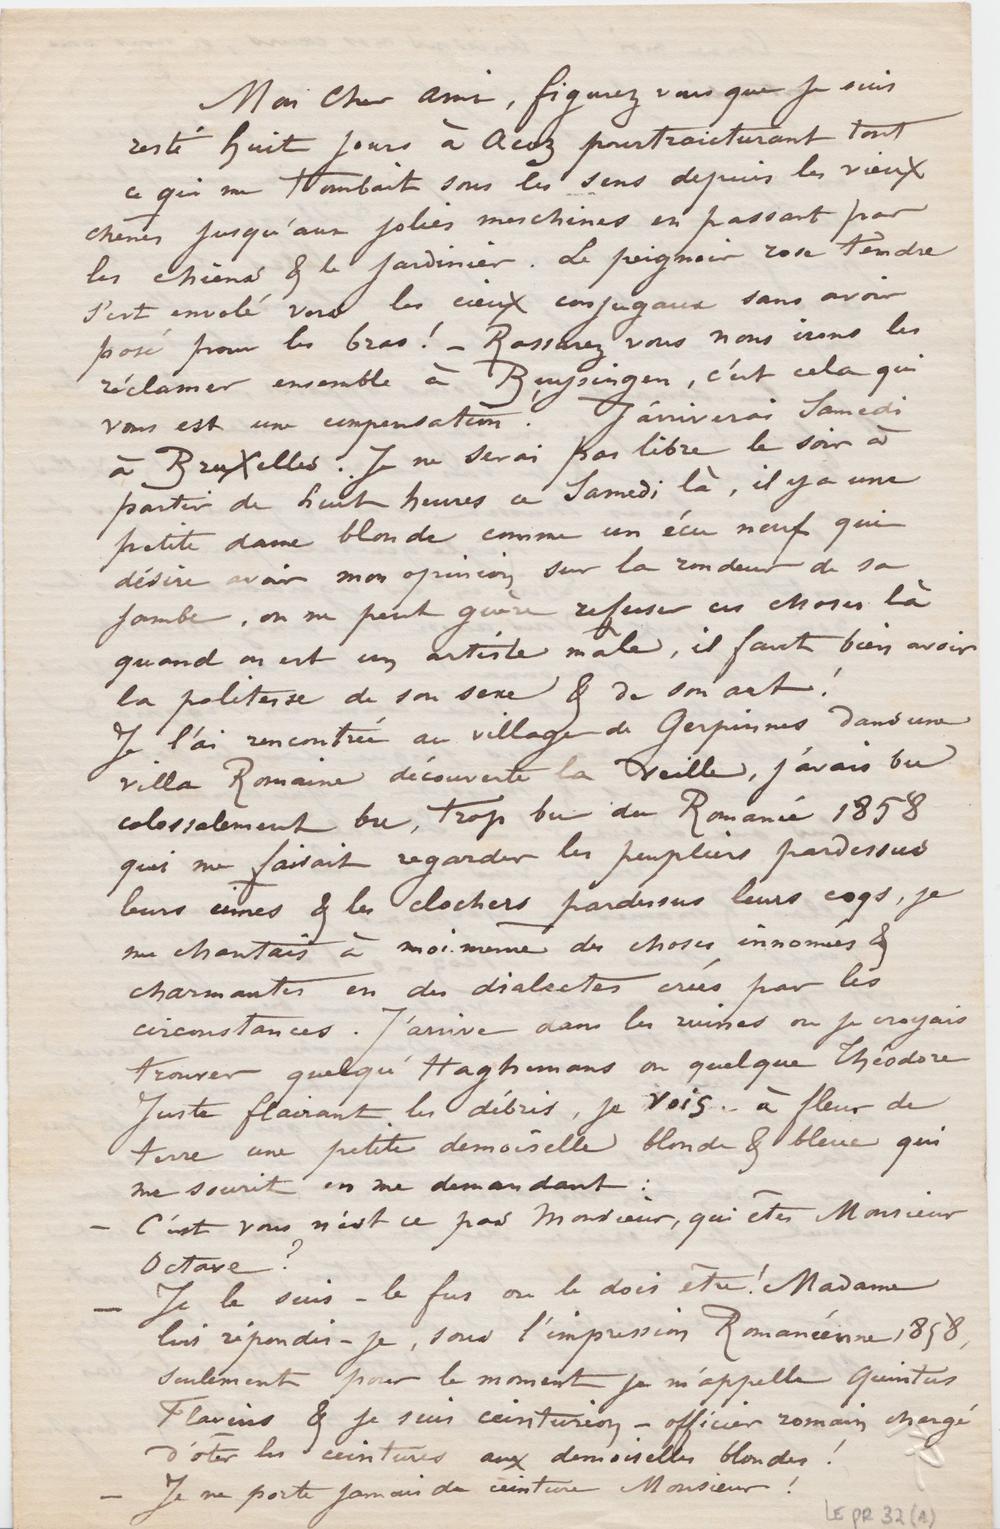 Mon Cher Ami, figurez vous que je suis
resté huit jours à Acoz pourtraicturant tout
ce qui me tombait sous les sens depuis les vieux
chênes jusqu'aux jolies meschines en passant par
les chiens & le jardinier. Le peignoir rose tendre
s'est envolé vers les cieux conjugaux sans avoir
posé pour les bras! – Rassurez vous nous irons les
réclamer ensemble à Buysingen, c'est cela qui
vous est une compensation. J'arriverai Samedi
à Bruxelles. Je ne serai pas libre le soir à
partir de huit heures ce Samedi là, il y a une
petite dame blonde comme un écu neuf qui
désire avoir mon opinion sur la rondeur de sa
jambe, on ne peut guère refuser ces choses là
quand on est un artiste mâle, il faut bien avoir
la politesse de son sexe & de son art!
Je l'ai rencontrée au village de Gerpinnes dans une
villa Romaine découverte la veille, j'avais bu
colossalement bu, trop bu du Romanée 1858
qui me faisait regarder les peupliers pardessus
leurs cimes & les clochers pardessus leurs coqs, je
me chantais à moi-même des choses innomées &
charmantes en des dialectes créés par les
circonstances. J'arrive dans les ruines ou je croyais
trouver quelqu' Haghemans ou quelque Théodore
Juste flairant les débris, je vois – à fleur de
terre une petite demoiselle blonde & bleue qui
me sourit en me demandant :
– C'est vous n'est ce pas Monsieur, qui êtes Monsieur
Octave ?
– Je le suis – le fus ou le dois être! Madame
lui répondis-je, sous l'impression Romanéenne 1858,
seulement pour le moment je m'appelle Quintus
Flavius & je suis ceinturion – officier romain chargé
d'ôter les ceintures aux demoiselles blondes !
– Je ne porte jamais de ceinture Monsieur !
LE PR 32 (A)